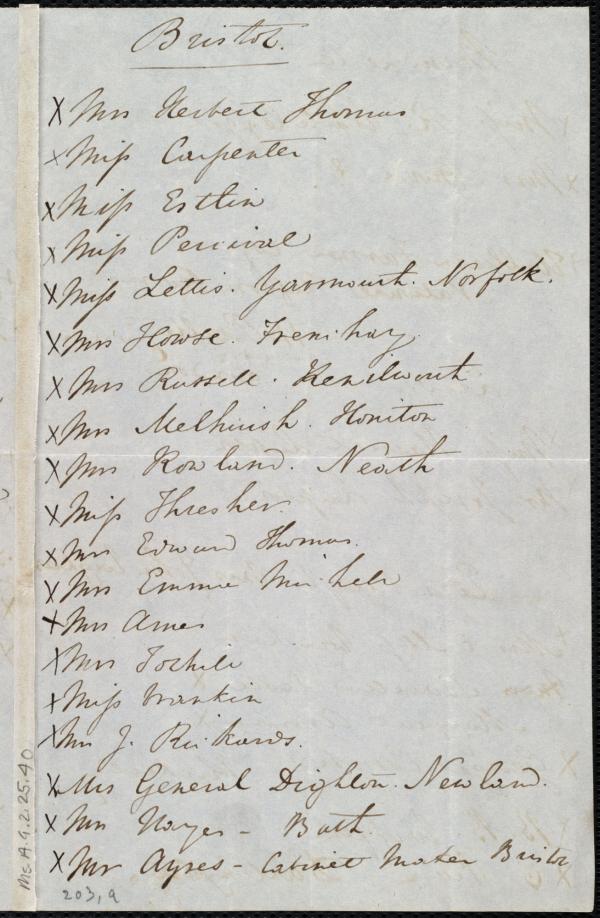 Bristol.
X Mrs Herbert Thomas
X Miss Carpenter
X Miss Estlin
X Miss Percival
X Miss Lettis. Yarmouth. Norfolk.
X Mrs Howse. Frenchay.
X Mrs Russell. Kenilworth
X Mrs Melhuish. Honiton
X Mrs Rowland. Neath
X Miss Thresher
X Mrs Edward Thomas.
X Mrs Emmie Michell
X Mrs Ames
X Mrs
X Miss
X Mrs J. Rickards.
X Mrs General Dighton. Newland.
X Mrs Noyes - Bath.
X Mr Ayres - Cabinet Maker Bristol
Ms.A.9.2.25.40
203, a